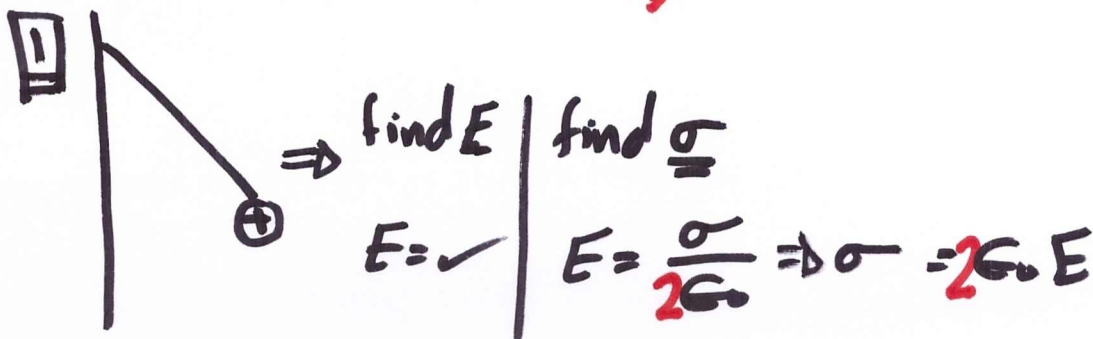 1
find E
find σ
⊕ ⇒
E = ✓
E = σ/2ϵ₀ ⇒ σ = 2ϵ₀ E